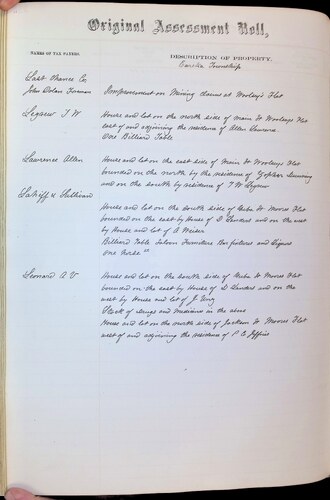 Original Assessment Roll,
NAMES OF TAX PAYERS.
DESCRIPTION OF PROPERTY.
Eureka Township
Last Chance Co
John Dolan Foreman
Improvement on Mining claims at Woolseys Flat
Legaur T W
House and lot on the north side of Main St Woolseys Flat
east of and adjoining the residence of Allen Lawrence.
One Billiard Table
Lawrence Allen
House and lot on the east side of Main St Woolseys Flat
bounded on the north by the residence of Dunning
and on the south by residence of T W Legaur
& Sullivan
House and lot on the south side of Main St Moores Flat
bounded on the east by House of D Landers and on the west
by House and lot of A Weiser
Billiard Table Saloon Furniture Bar fixtures and Liquors
One Horse
Leonard A V
House and lot on the south side of Main St Moores Flat
bounded on the east by House of D Landers and on the
west by House and lot of J
Stock of Drugs and Medicine in the above
House and lot on the north side of Jackson St Moores Flat
west of and adjoining the residence of P C